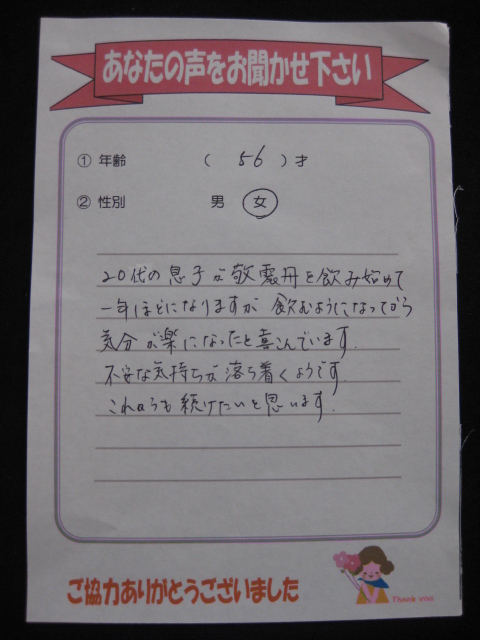 あなたの声をお聞かせ下さい
① 年齢 ( 56 ) 才
② 性別 男 女
20代の息子が敬震丹を飲み始めて
一年ほどになりますが 飲むようになってから
気分が楽になったと喜んでいます.
不安な気持ちが落ち着くようです
これからも続けたいと思います.
ご協力ありがとうございました
Thank you